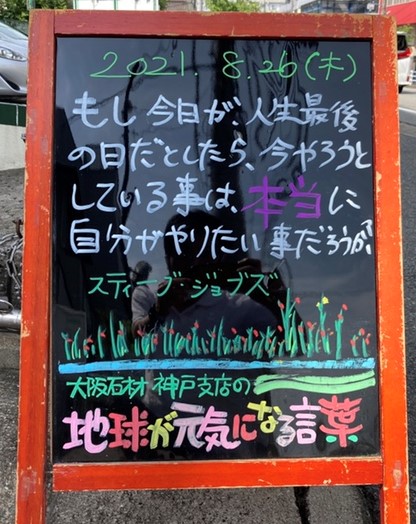 2021. 8.26(木)
もし今日が、人生最後
の日だとしたら、今やろうと
している事は、本当に
自分がやりたい事だろうか?
スティーブ・ジョブズ
大阪石材 神戸支店の
地球が元気になる言葉